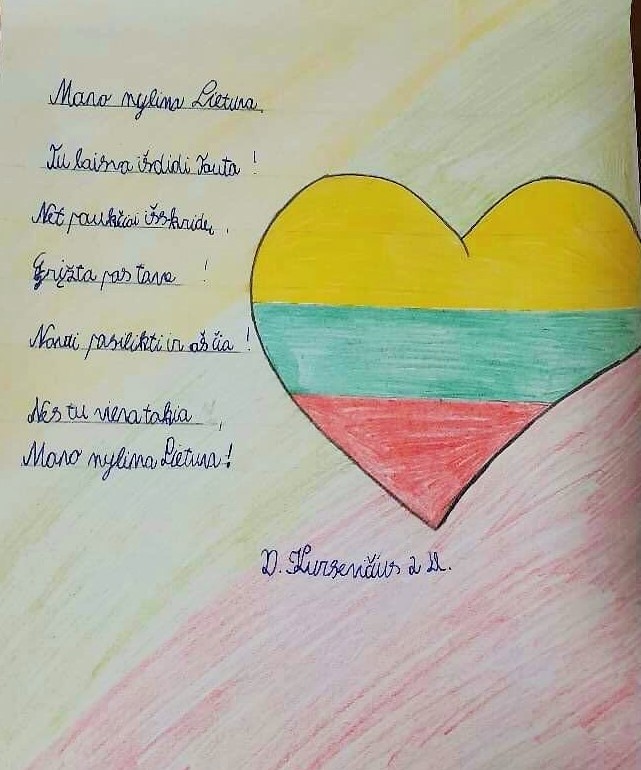 Mano mylima Lietuva.
Tu laisva išdidi tauta!
Net paukščiai išskridę,
Grįžta pas tave!
Noriu pasilikti ir aš čia!
Nes tu viena tokia,
Mano mylima Lietuva!
D. Kursenčius 2